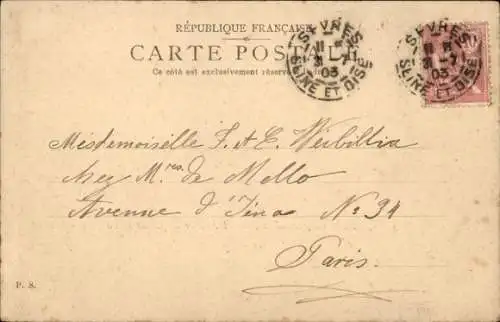 RÉPUBLIQUE FRANÇAISE
CARTE POSTALE
Ce côté est exclusivement réservé
SÈVRES
11
31-7
03
SEINE ET OISE
SÈVRES
11
31-7
03
SEINE ET OISE
10
Mesdemoiselle J. & E.
chez M.res de Mello
Avenue d'Iéna No. 34
Paris.
P. S.